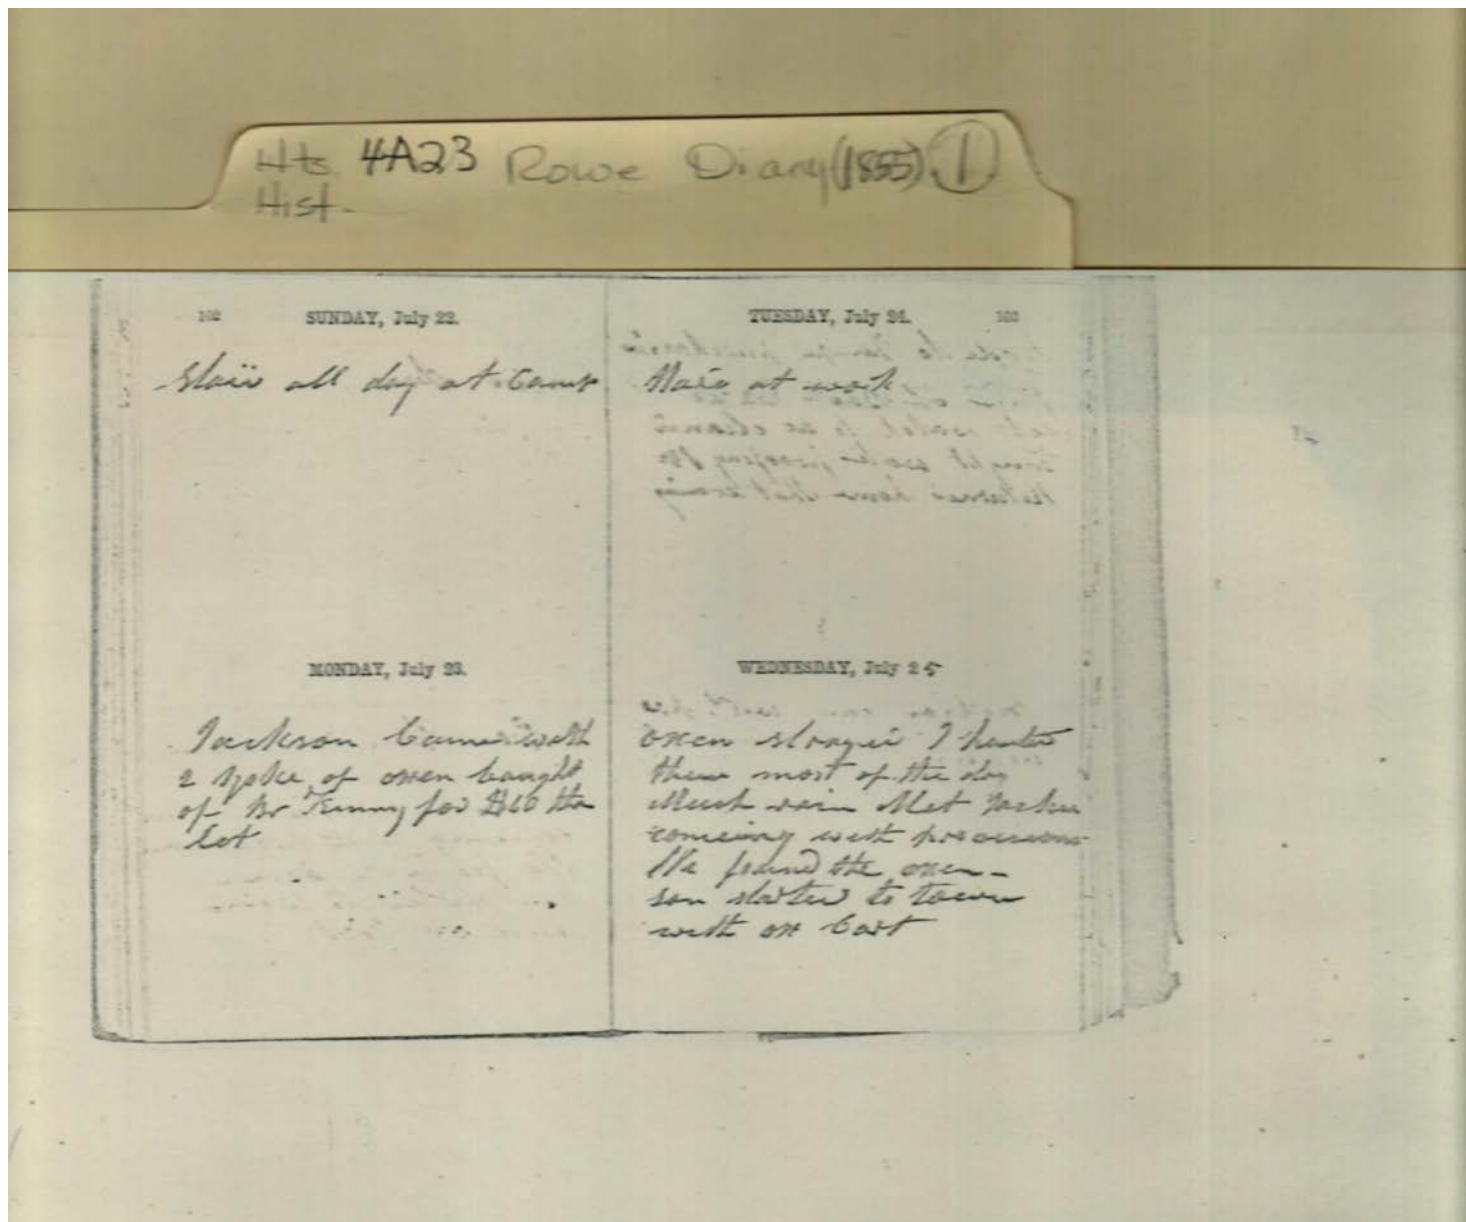 Hts 4A23 Rowe Diary (1855) 1
Hist.
102 SUNDAY, July 22.
Staid all day at Camp
MONDAY, July 23.
Jackson Came with
2 yoke of oxen bought
of Mr for $160 the
lot
TUESDAY, July 24. 103
Staid at work
WEDNESDAY, July 25
oxen strayed I hunted
them most of the day
Much rain Met
comeing with provisions
He found the oxen -
son started to town
with ox Cart